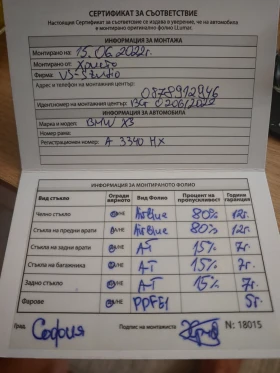 СЕРТИФИКАТ ЗА СЪОТВЕТСТВИЕ
Настоящия Сертификат за съответствие се издава в уверение, че на автомобила
е монтирано оригинално фолио LLumar.
ИНФОРМАЦИЯ ЗА МОНТАЖА
Монтирано на: 15.06.2022г.
Монтирано от: Христо
Фирма: VS-Studio
Адрес и телефон на монтажния център:
0878912946
Идентиф. номер на монтажния център: BG 0206/2022
ИНФОРМАЦИЯ ЗА АВТОМОБИЛА
Марка и модел: BMW X3
Номер рама:
Регистрационен номер: A 3340 HX
ИНФОРМАЦИЯ ЗА МОНТИРАНОТО ФОЛИО
Вид стъкло Огради вярното Вид Фолио Процент на пропускливост Години гаранция
Челно стъкло ДА/НЕ AirBlue 80% 12г.
Стъкла на предни врати ДА/НЕ AirBlue 80% 12г.
Стъкла на задни врати ДА/НЕ AT 15% 7г.
Стъкла на багажника ДА/НЕ AT 15% 7г.
Задно стъкло ДА/НЕ AT 15% 7г.
Фарове ДА/НЕ 5г.
Град София Подпис на монтажиста N: 18015